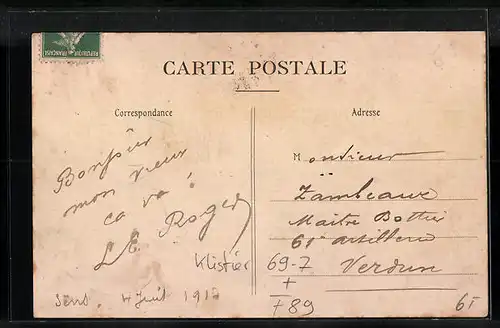 REPUBLIQUE FRANÇAISE
CARTE POSTALE
Correspondance
Adresse
Bonjour
mon vieux
ca va !
Roger
Klistier
Sens. 4 Juil 191
Monsieur
Zambeaux
Maître Bottier
61e artillerie
Verdun
69-7
+
+89
6,-